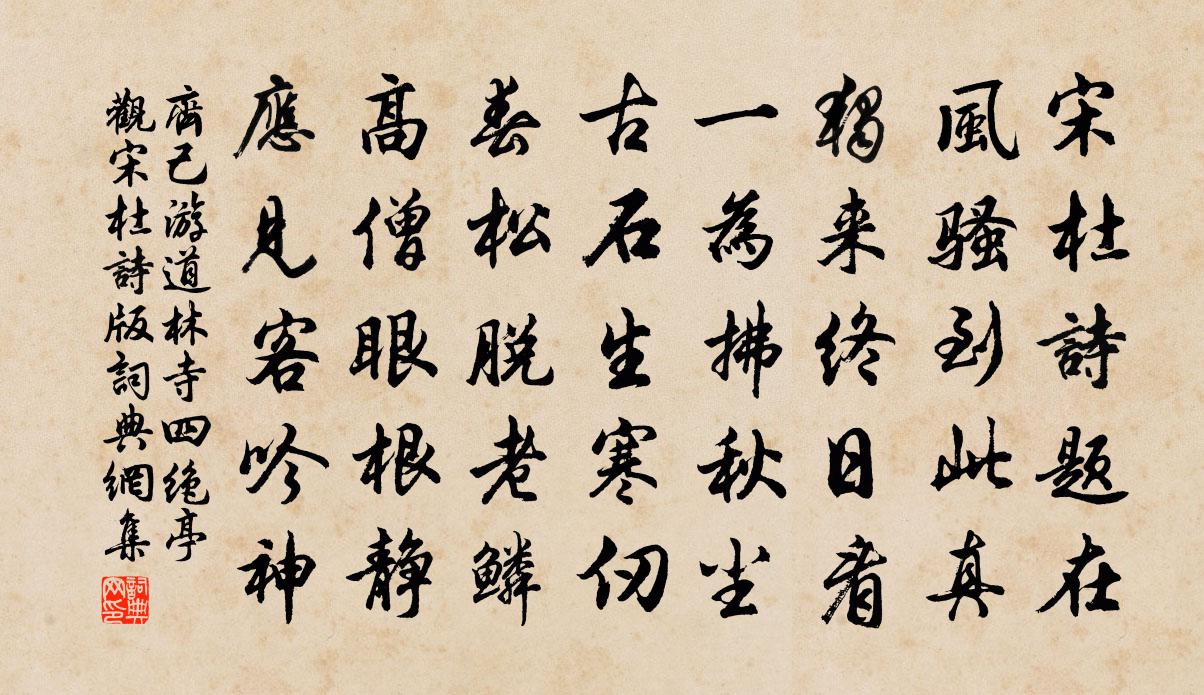 宋杜詩题在
風騷到此真
獨来終日看
一為拂秋尘
古石生寒仞
春松脱老鱗
高僧眼根静
應見客吟神
齊己游道林寺四絶亭
觀宋杜詩版詞典網集
詞典网印